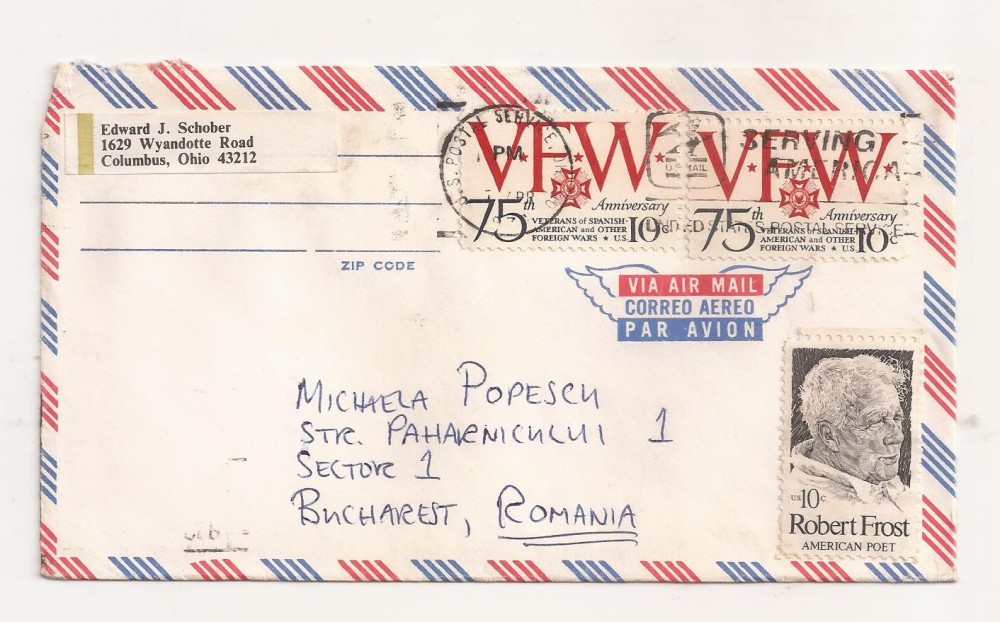 Edward J. Schober
1629 Wyandotte Road
Columbus, Ohio 43212
U.S. POSTAL SERVICE
PM
APR
VFW
75th Anniversary
VETERANS of SPANISH-
AMERICAN and OTHER
FOREIGN WARS ★ U.S. 10c
VFW
75th Anniversary
VETERANS of SPANISH-
AMERICAN and OTHER
FOREIGN WARS ★ U.S. 10c
U.S. MAIL
SERVING
AMERICA
UNITED STATES POSTAL SERVICE
ZIP CODE
VIA AIR MAIL
CORREO AEREO
PAR AVION
MICHAELA POPESCU
STR. PAHARNICULUI 1
SECTOR 1
BUCHAREST, ROMANIA
U.S. 10c
Robert Frost
AMERICAN POET